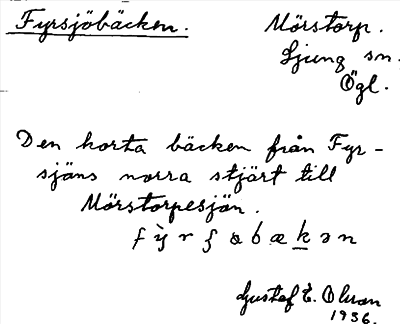 Fyrsjöbäcken.
Mörstorp.
Ljung sn.
Ögl.
Den korta bäcken från Fyr-
sjäns norra stjärt till
Mörstorpesjön.
Gustaf E. Olson
1936.